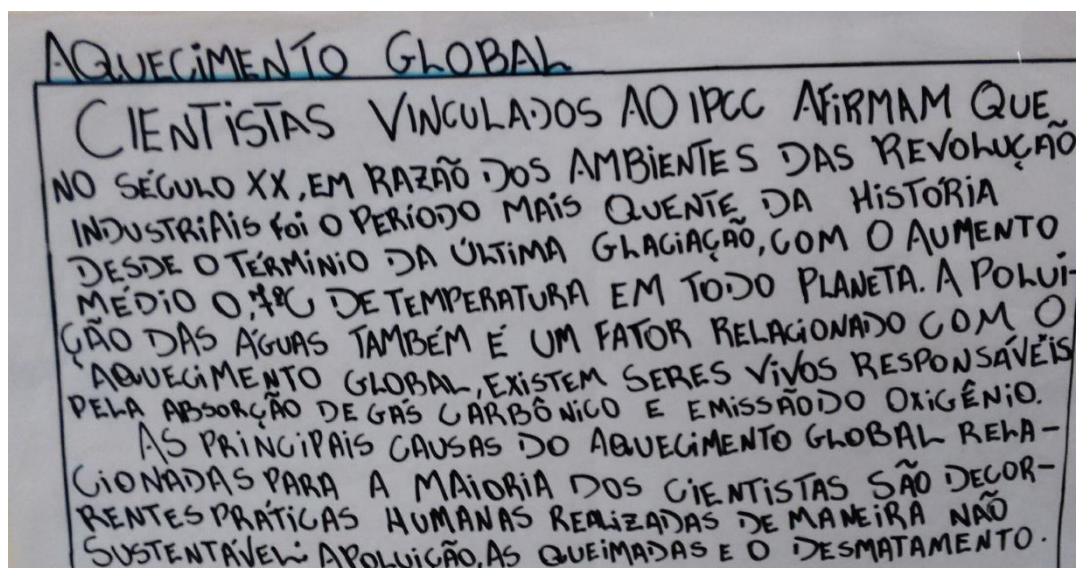 AQUECIMENTO GLOBAL
CIENTISTAS VINCULADOS AO IPCC AFIRMAM QUE
NO SÉCULO XX, EM RAZÃO DOS AMBIENTES DAS REVOLUÇÃO
INDUSTRIAIS FOI O PERÍODO MAIS QUENTE DA HISTÓRIA
DESDE O TÉRMINIO DA ÚLTIMA GLACIAÇÃO, COM O AUMENTO
MÉDIO 0,7ºC DE TEMPERATURA EM TODO PLANETA. A POLUI-
ÇÃO DAS ÁGUAS TAMBÉM É UM FATOR RELACIONADO COM O
AQUECIMENTO GLOBAL, EXISTEM SERES VIVOS RESPONSÁVEIS
PELA ABSORÇÃO DE GÁS CARBÔNICO E EMISSÃO DO OXIGÊNIO.
AS PRINCIPAIS CAUSAS DO AQUECIMENTO GLOBAL RELA-
CIONADAS PARA A MAIORIA DOS CIENTISTAS SÃO DECOR-
RENTES PRÁTICAS HUMANAS REALIZADAS DE MANEIRA NÃO
SUSTENTÁVEL: A POLUIÇÃO, AS QUEIMADAS E O DESMATAMENTO.